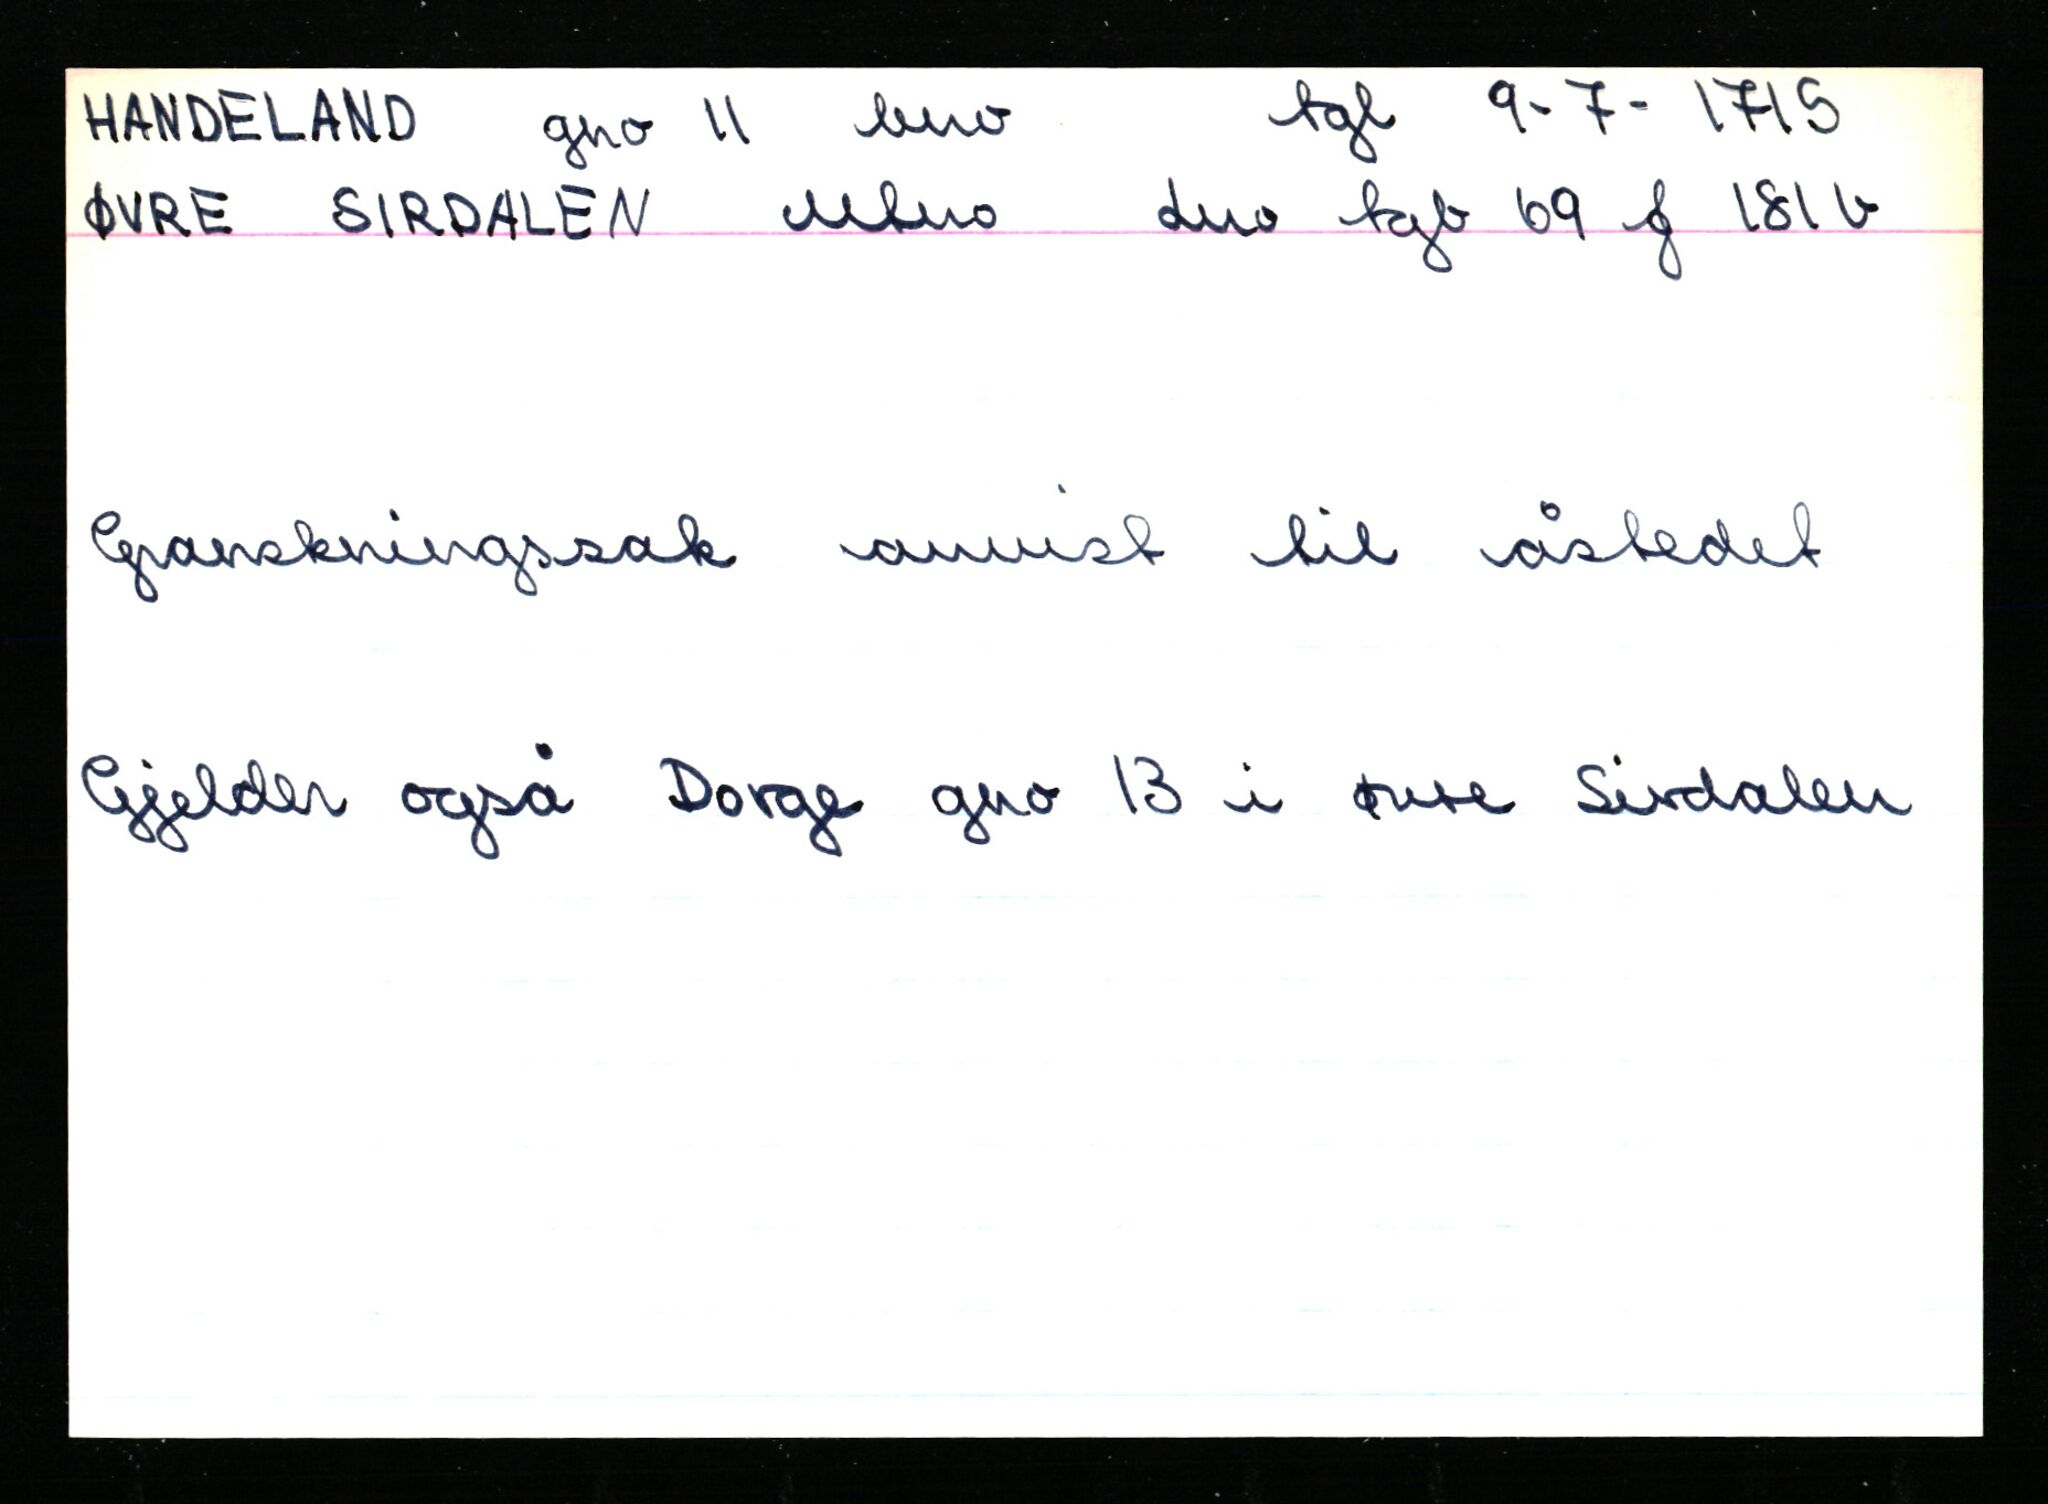 HANDELAND gno 11 bno tgl 9-7-1715
ØVRE SIRDALEN mtno lno tgb 69 f 181 b
Granskningssak anvist til åstedet
Gjelder også Dorge gno 13 i øvre Sirdalen